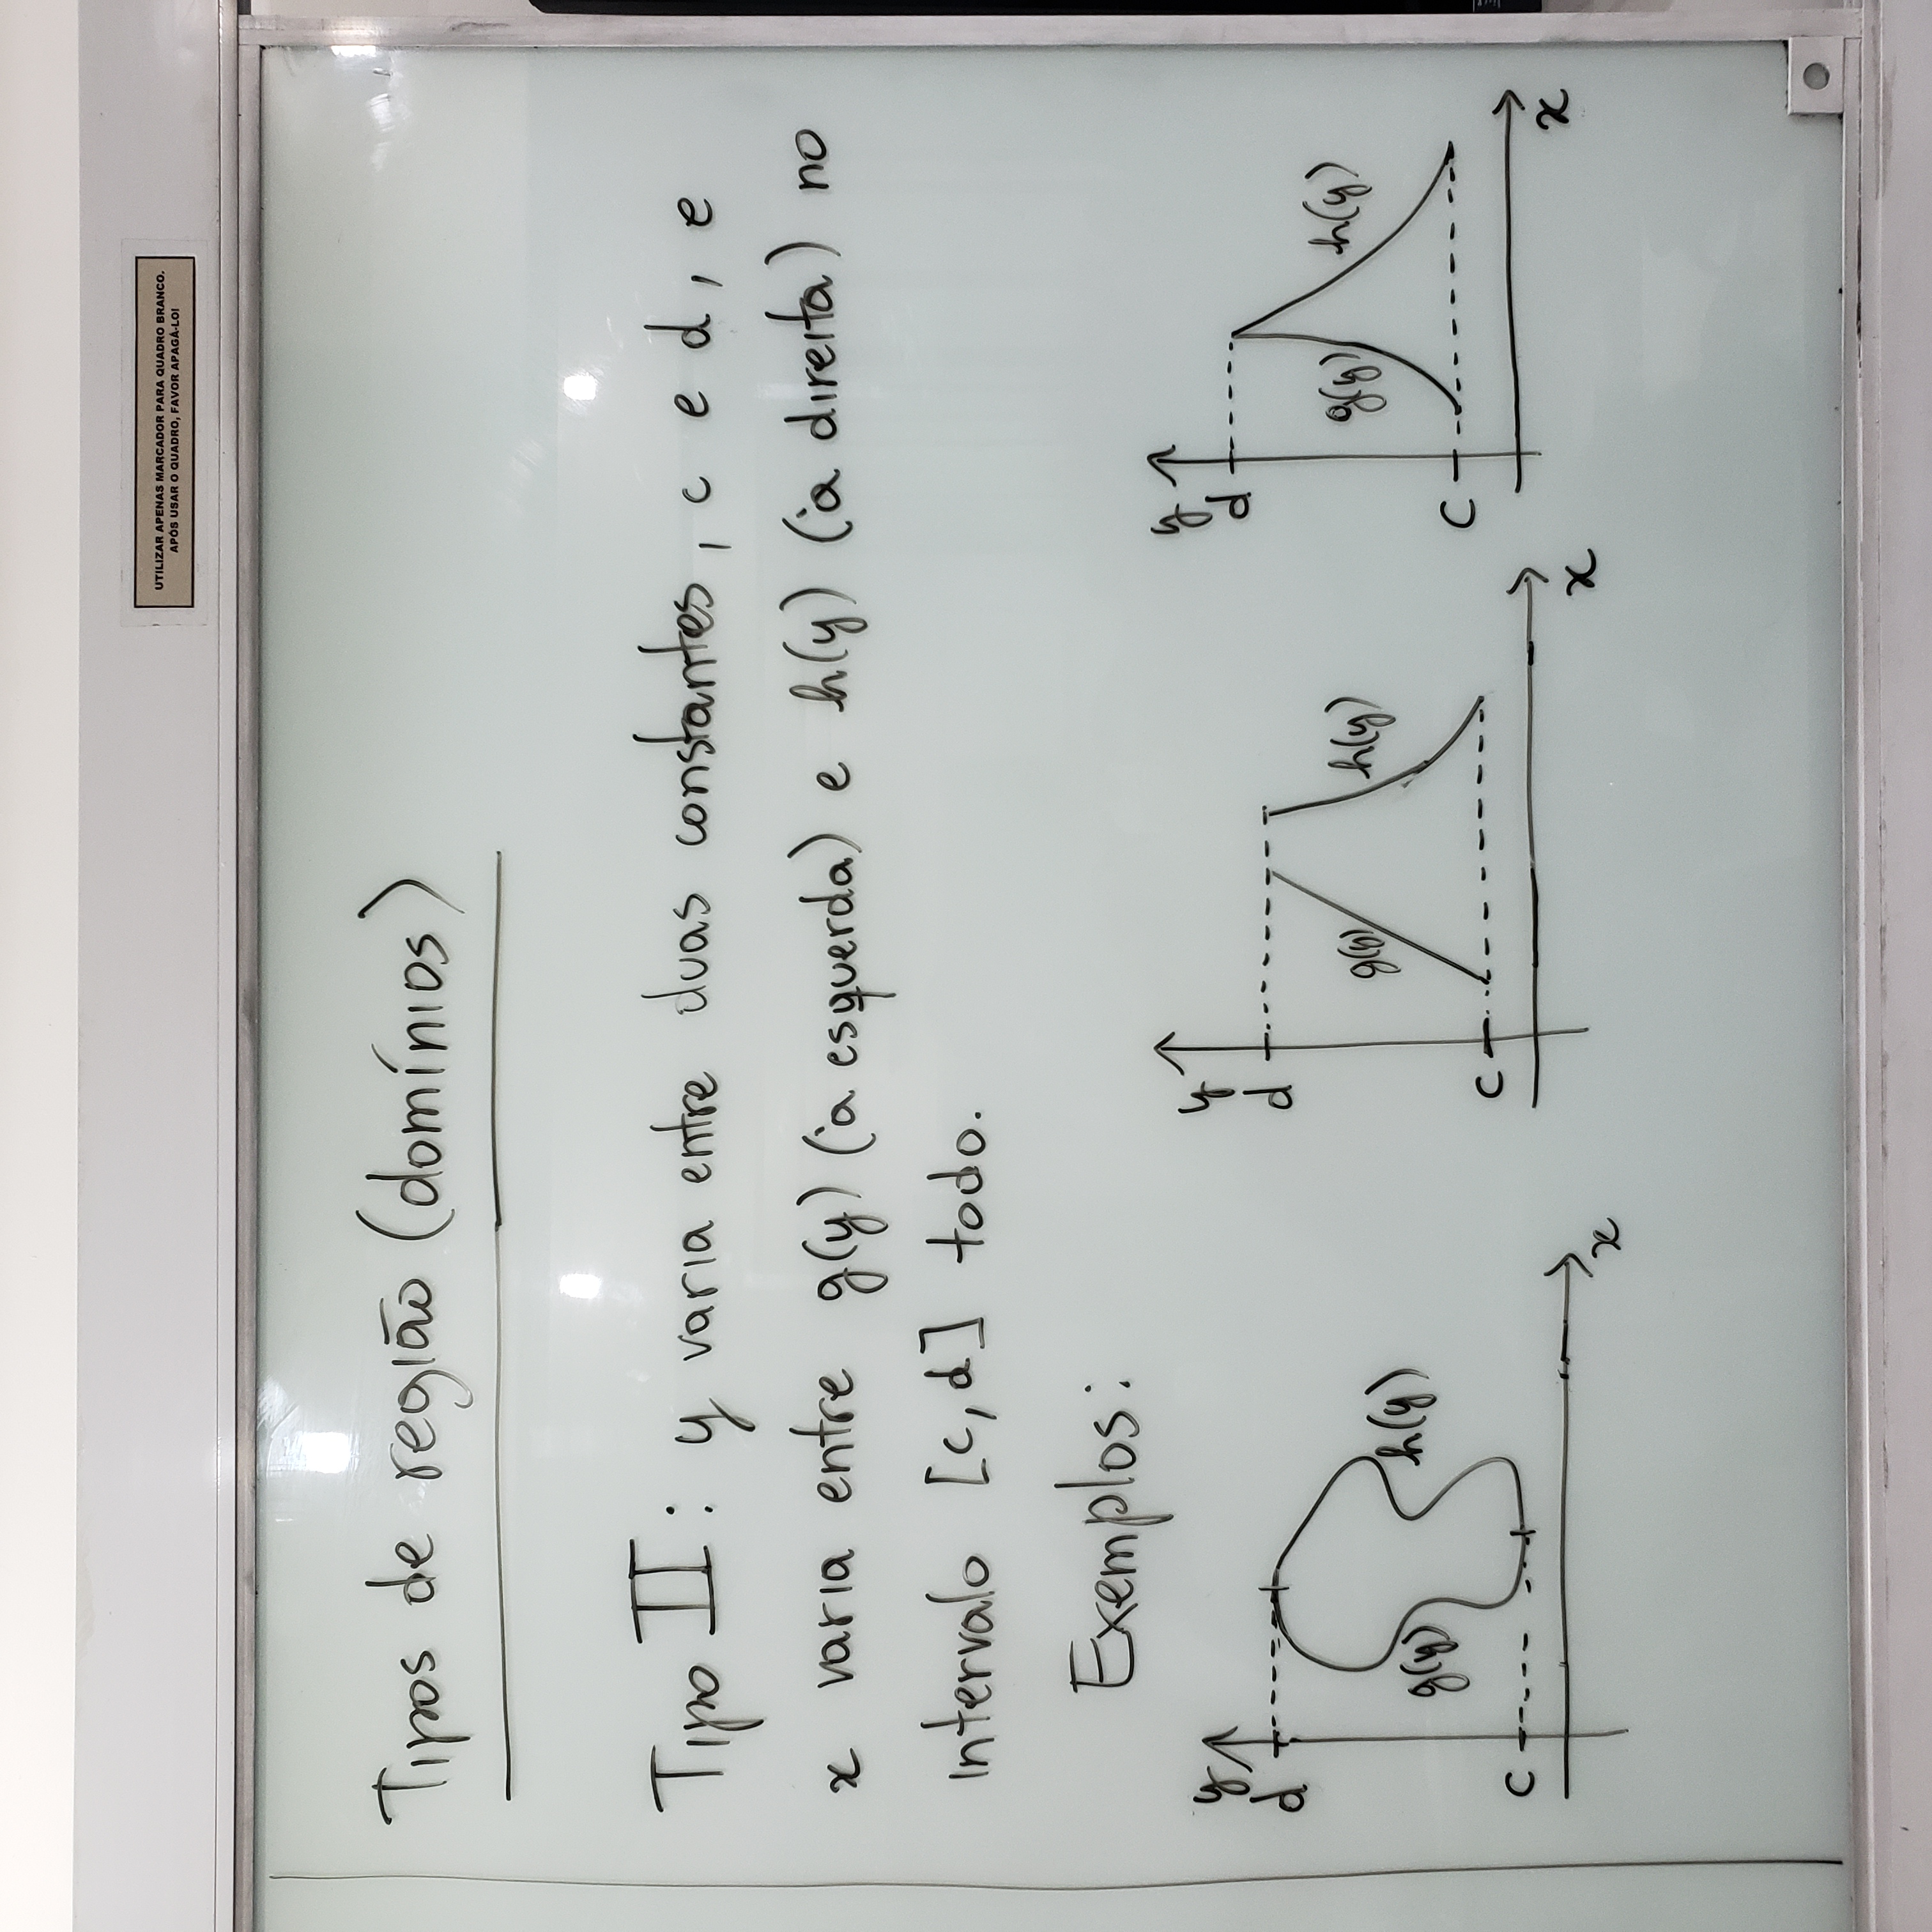 UTILIZAR APENAS MARCADOR PARA QUADRO BRANCO.
APÓS USAR O QUADRO, FAVOR APAGÁ-LO!
Tipos de região (domínios)
Tipo II: y varia entre duas constantes, c e d, e
x varia entre g(y) (à esquerda) e h(y) (à direita) no
intervalo [c, d] todo.
Exemplos:
y
d
g(y)
h(y)
c
x
y
d
g(y)
h(y)
c
x
y
d
g(y)
h(y)
c
x